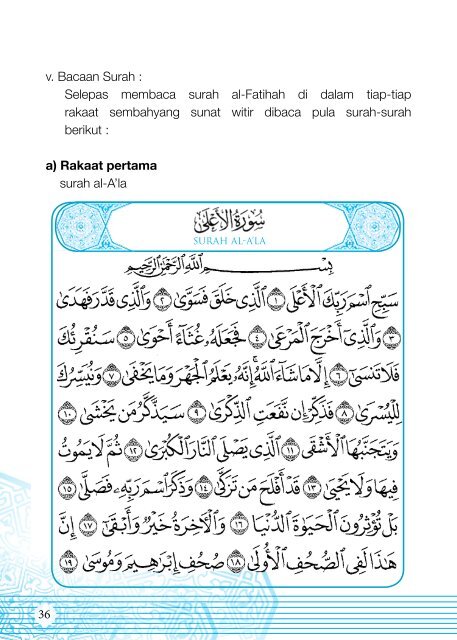 v. Bacaan Surah :
Selepas membaca surah al-Fatihah di dalam tiap-tiap
rakaat sembahyang sunat witir dibaca pula surah-surah
berikut :
a) Rakaat pertama
surah al-A'la
سُورَةُ الْأَعْلَىٰ
SURAH AL-A'LA
بِسْمِ اللَّهِ الرَّحْمَٰنِ الرَّحِيمِ
سَبِّحِ اسْمَ رَبِّكَ الْأَعْلَى ١ الَّذِي خَلَقَ فَسَوَّىٰ ٢ وَالَّذِي قَدَّرَ فَهَدَىٰ
٣ وَالَّذِي أَخْرَجَ الْمَرْعَىٰ ٤ فَجَعَلَهُ غُثَاءً أَحْوَىٰ ٥ سَنُقْرِئُكَ
فَلَا تَنسَىٰ ٦ إِلَّا مَا شَاءَ اللَّهُ إِنَّهُ يَعْلَمُ الْجَهْرَ وَمَا يَخْفَىٰ ٧ وَنُيَسِّرُكَ
لِلْيُسْرَىٰ ٨ فَذَكِّرْ إِن نَّفَعَتِ الذِّكْرَىٰ ٩ سَيَذَّكَّرُ مَن يَخْشَىٰ ١٠
وَيَتَجَنَّبُهَا الْأَشْقَى ١١ الَّذِي يَصْلَى النَّارَ الْكُبْرَىٰ ١٢ ثُمَّ لَا يَمُوتُ
فِيهَا وَلَا يَحْيَىٰ ١٣ قَدْ أَفْلَحَ مَن تَزَكَّىٰ ١٤ وَذَكَرَ اسْمَ رَبِّهِ فَصَلَّىٰ ١٥
بَلْ تُؤْثِرُونَ الْحَيَوٰةَ الدُّنْيَا ١٦ وَالْآخِرَةُ خَيْرٌ وَأَبْقَىٰ ١٧ إِنَّ
هَٰذَا لَفِي الصُّحُفِ الْأُولَىٰ ١٨ صُحُفِ إِبْرَٰهِيمَ وَمُوسَىٰ ١٩
36